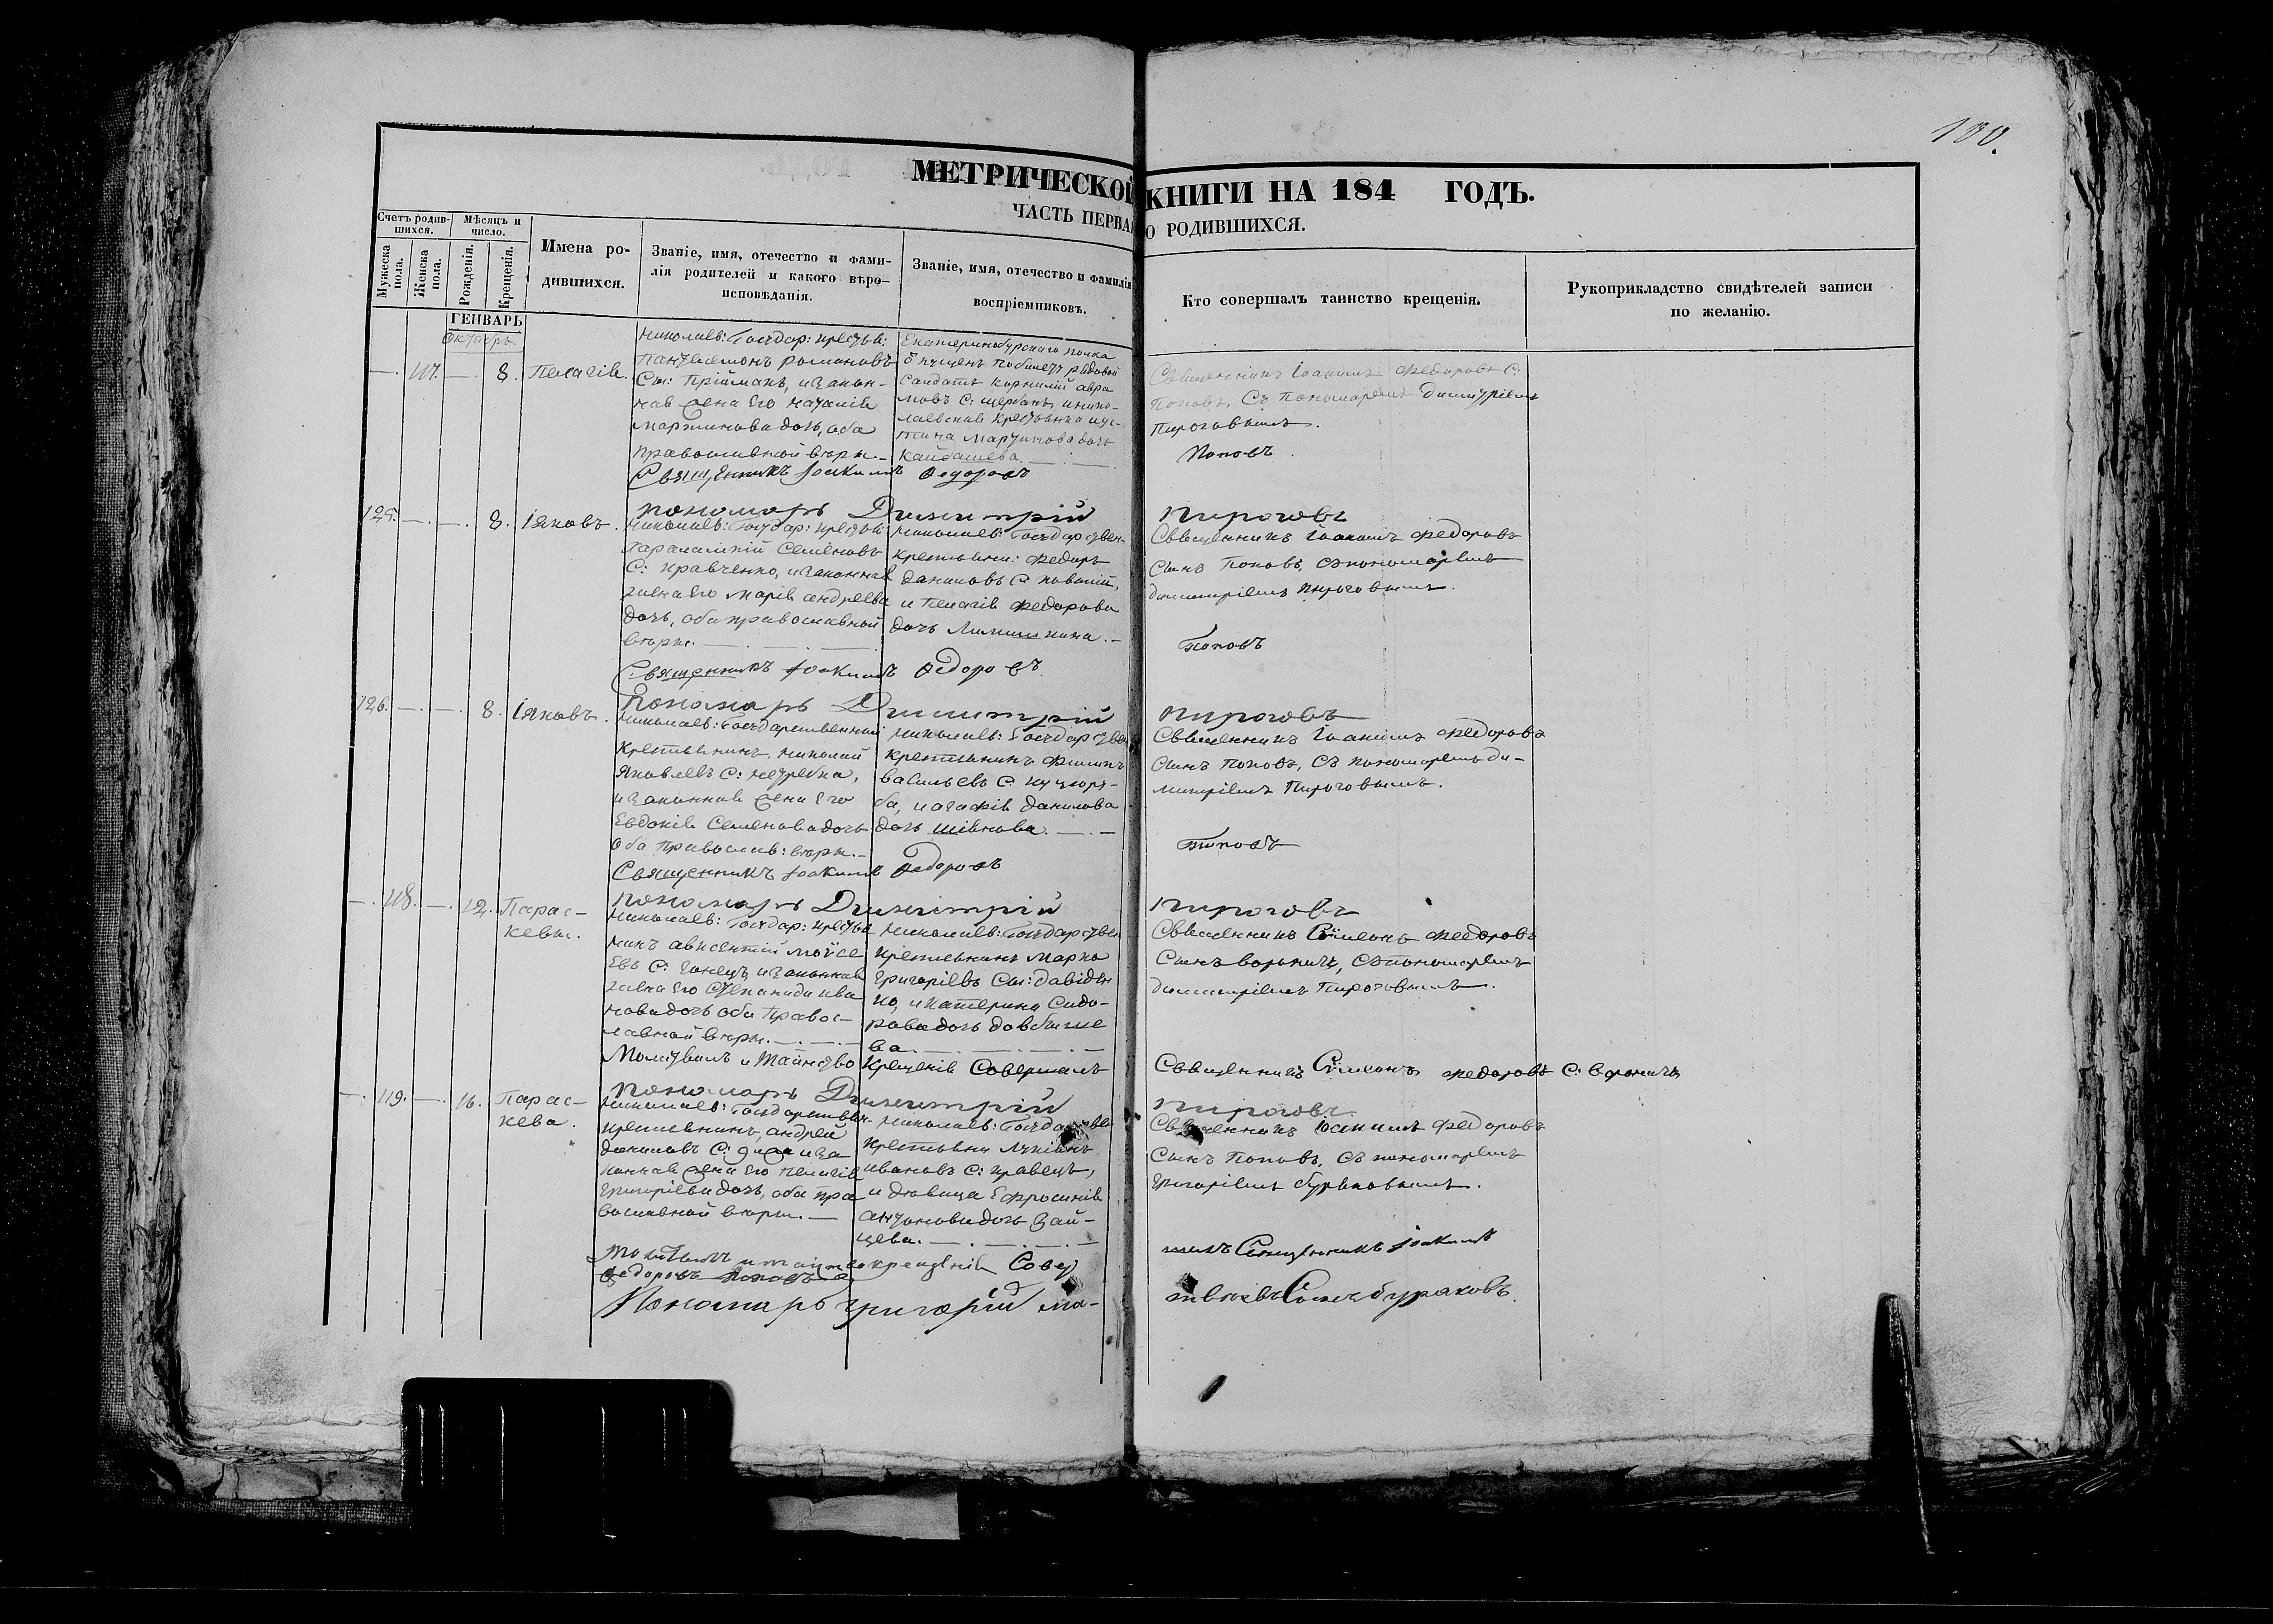 100.
МЕТРИЧЕСКОЙ КНИГИ НА 184 ГОДЪ.
ЧАСТЬ ПЕРВАЯ О РОДИВШИХСЯ.
Счетъ родив-
шихся.
Мѣсяцъ и
число.
Мужеска
пола.
Женска
пола.
Рожденія.
Крещенія.
Имена ро-
дившихся.
Званіе, имя, отечество и фами-
лія родителей и какого вѣро-
исповѣданія.
Званіе, имя, отечество и фамилія
воспріемниковъ.
Кто совершалъ таинство крещенія.
Рукоприкладство свидѣтелей записи
по желанію.
ГЕНВАРЬ
Октябрь
117. 8. Пелагія.
Николаев: Государ: крестья:
Пантелемонъ Романовъ
Сы: Прійманъ, и закон-
ная жена его Наталія
Мартинова дочь, оба
православной вѣры.
Екатеринбурскаго полка
рядовой
Солдатъ Корнилій Авра
мовъ С:
лаевская крестьянка Иус-
тина Мартинова дочь
Кайдашева
Священникъ Іоакимъ Федоровъ С:
Поповъ, Съ Пономаремъ Димитріемъ
Пироговымъ.
Священникъ Іоакимъ Федоровъ Поповъ
пономарь Димитрій Пироговъ
125. 8. Іяковъ.
Николаев: Государ: крестья:
Харалампій Семеновъ
С: Кравченко, и законная
жена его Марія Андреева
дочь, оба православной
вѣры.
Николаев: Государствен.
крестьяни: Федоръ
Даниловъ С:
и Пелагія Федорова
дочь
Священникъ Іоакимъ Федоровъ
Сынъ Поповъ, съ пономаремъ
Димитріемъ Пироговымъ.
Священникъ Іоакимъ Федоровъ Поповъ
Пономарь Димитрій Пироговъ
126. 8. Іяковъ.
Николаев: Государственный
крестьянинъ, Николай
Яковлевъ С:
и законная жена его
Евдокія Семенова дочь
оба Православ: вѣры.
Николаев: Государствен
крестьянинъ Филипъ
Васильевъ С: Куцюру-
ба, и Агафія Данилова
дочь
Священникъ Іоакимъ Федоровъ
Сынъ Поповъ, Съ пономаремъ Ди-
митріемъ Пироговымъ.
Священникъ Іоакимъ Федоровъ Поповъ
пономарь Димитрій Пироговъ
118. 12. Парас-
кевы.
Николаев: Государ: крестья
нинъ Авксентій Моисе
евъ С: Гонецъ, и законная
жена его Степанида Ива
нова дочь оба Правос-
лавной вѣры.
Николаев: Государствен
крестьянинъ Марко
Григоріевъ Сы: Давіден
ко, и Катерина Сидо-
рова дочь Довбыше
ва
Священникъ Сімеонъ Федоровъ
Сынъ Вороничъ, съ пономаремъ
Димитріемъ Пироговымъ.
Молитвалъ и Таинство Крещенія Совершалъ Священникъ Сімеонъ Федоровъ С: Вороничъ
пономарь Димитрій Пироговъ
119. 16. Парас-
кева.
Николаев: Государствен.
крестьянинъ, Андрей
Даниловъ С: и за
конная жена его Пелагія
Григоріева дочь, оба пра
вославной вѣры.
Николаев: Государствен
крестьяни Лукіянъ
Ивановъ С: Кравецъ,
и дѣвица Ефросинія
Антонова дочь Зай-
цева.
Священникъ Іоакимъ Федоровъ
Сынъ Поповъ, Съ пономаремъ
Григоріемъ Бураковымъ.
Священникъ Іоакимъ
Федоровъ Поповъ
Пономарь Григорій Ма-
твѣевъ Сынъ Бураковъ.